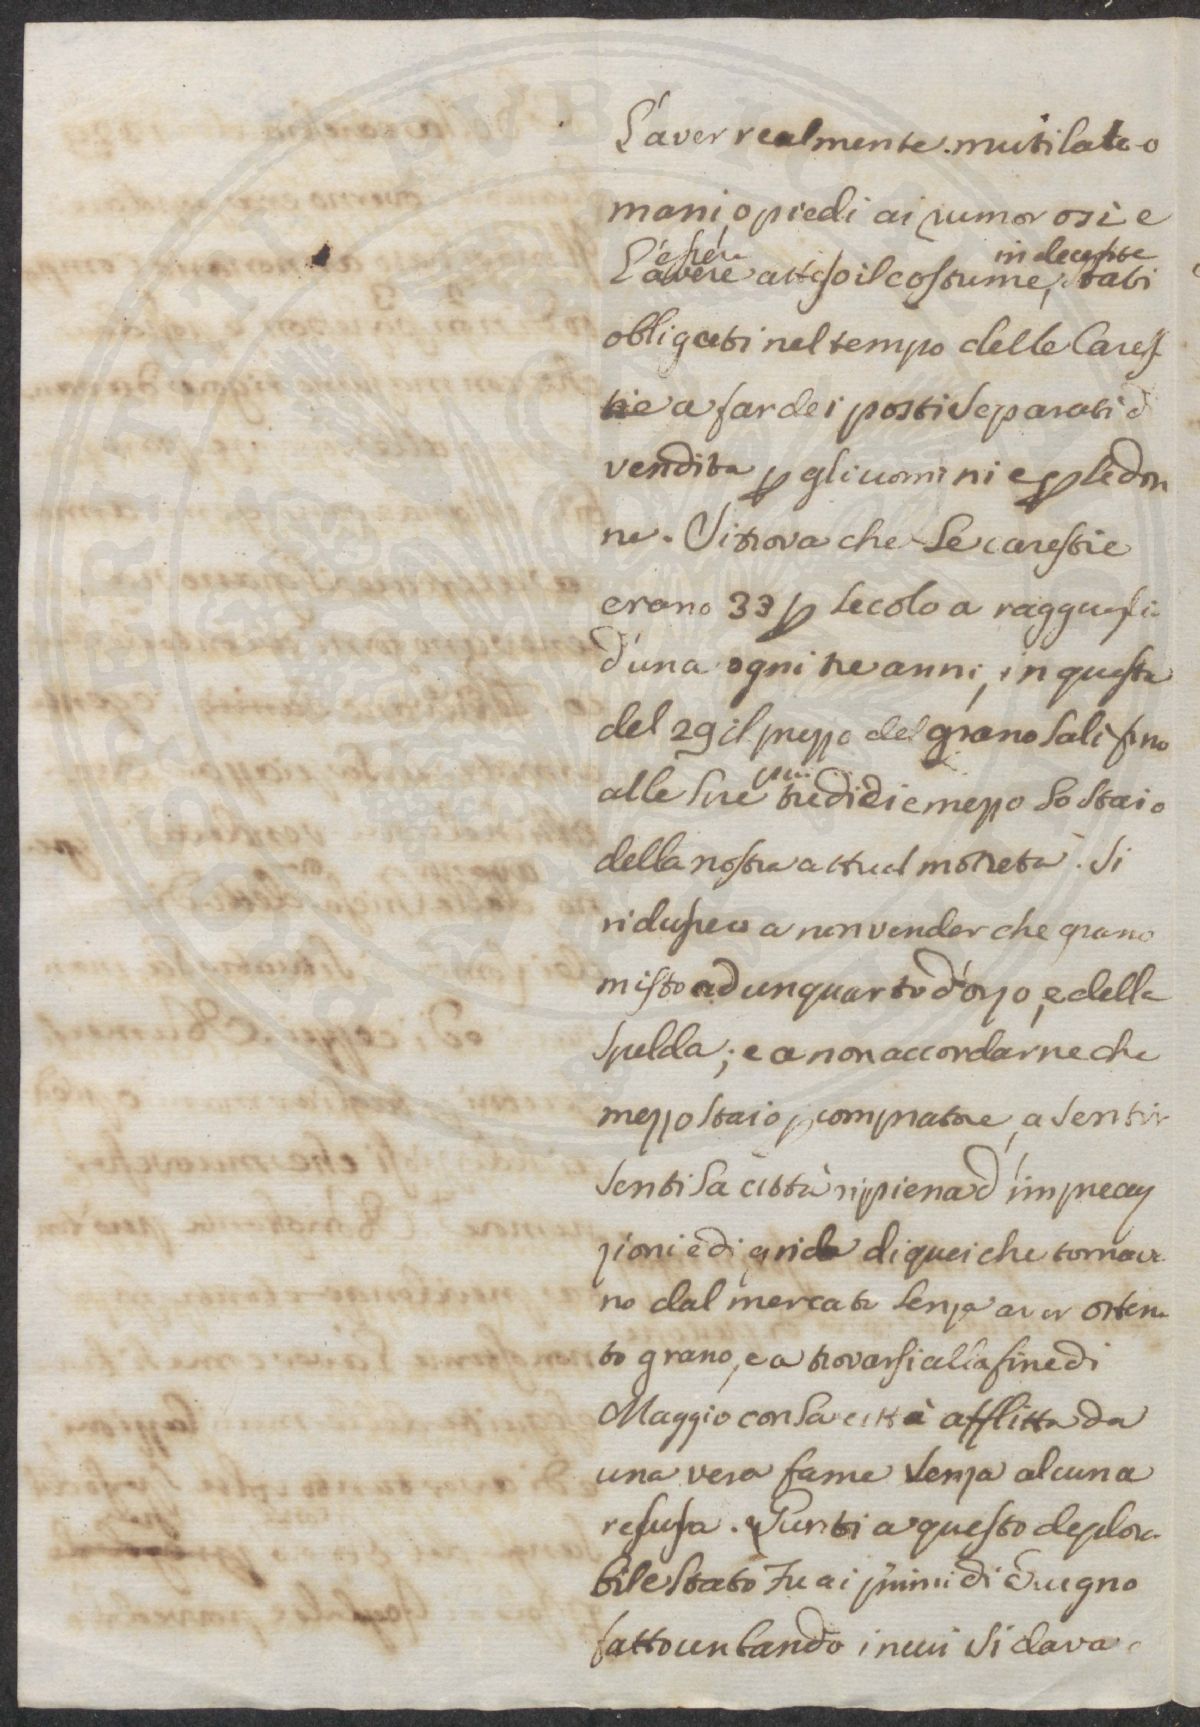 L'aver realmente mutilato o
mani, o piedi ai rumorosi e
l'esser indecente
L'avere atteso il costume, stati
obligati nel tempo delle Cares
tie a far dei posti separati d
vendita p gli uomini e p le don
ne. Si trova che le carestie
erano 33 p secolo a ragguagli
d'una ogni tre anni, in questa
del 29 il prezzo del grano salì fino
alle lire più
tredici e mezzo lo staio
della nostra attual moneta. Si
ridusseo a non vender che grano
misto ad un quarto d'orzo, e della
spelda; e a non accordarne che
mezzo staio p compratore, a sentir
senti la città ripiena d'imprecaz
zioni e di grida di quei che tornava
no dal mercato senza aver ottenu
to grano, e a trovarsi alla fine di
Maggio con la città afflitta da
una vera fame senza alcuna
resusa. Giunti a questo deplora
bile stato Fu ai primi di Giugno
fatto un bando in cui si dava